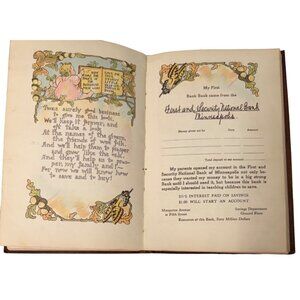 Twas surely good business
to give me this book,
We'll keep it forever, and
oft take a look
At the names of the givers,
the friends it will win
And we'll help them to prosper
and grow like the oak.
And they'll help us to
my family and I—
For now we will know how
to save and to buy!
My First
Bank Book came from the
First and Security National Bank
Minneapolis
Total deposit of my account
My parents opened my account in the First and
Security National Bank of Minneapolis not only be-
cause they wanted my money to be in a big strong
Bank until I should need it, but because this bank is
specially interested in teaching children to save.
INTEREST PAID ON SAVINGS
$1.00 WILL START AN ACCOUNT
Marquette Avenue
at Fifth Street
Savings Department
Ground Floor
Resources of this Bank, Sixty Million Dollars